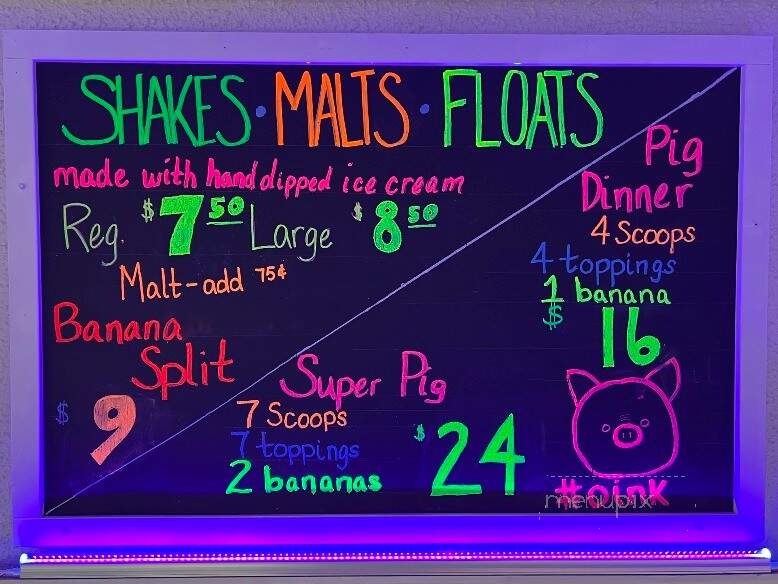 SHAKES · MALTS · FLOATS
made with hand dipped ice cream
Reg. $7.50 Large $8.50
Malt-add 75¢
Banana
Split
$9
Pig
Dinner
4 Scoops
4 toppings
1 banana
$16
Super Pig
7 Scoops
7 toppings
2 bananas
$24
#oink
menupix